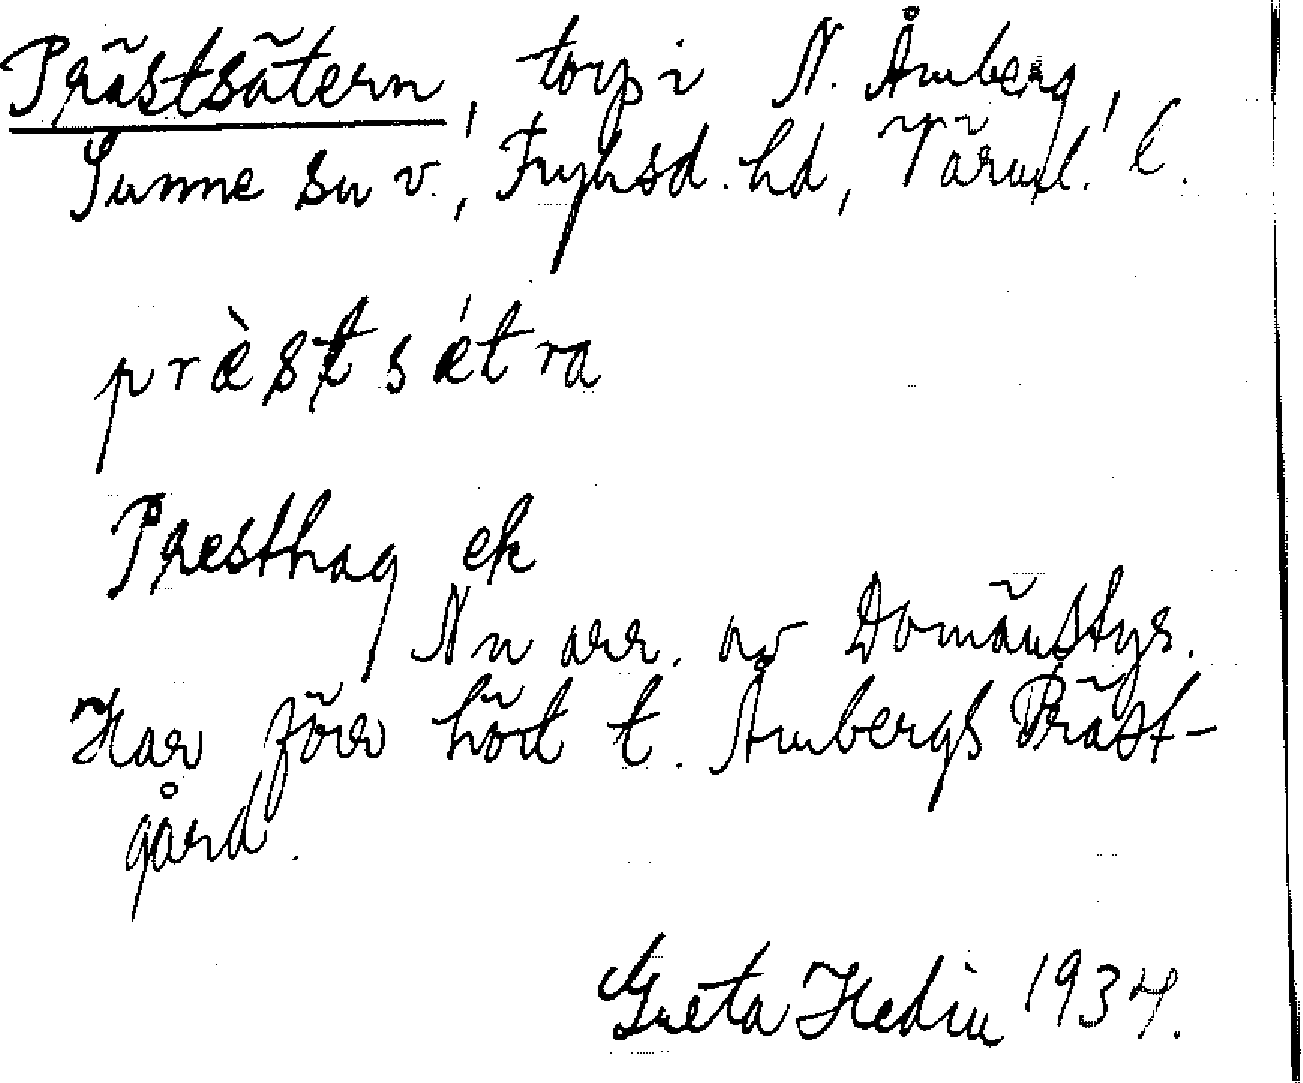 Prästsätern, torp i N. Åmberg,
Sunne sn v., Fryksd. hd, Värml. l.
prὲstsétra
Presthag ek
Nu arr. av Domänstyr.
Har förr hört t. Åmbergs Präst-
gård.
Greta Hedin 1934.